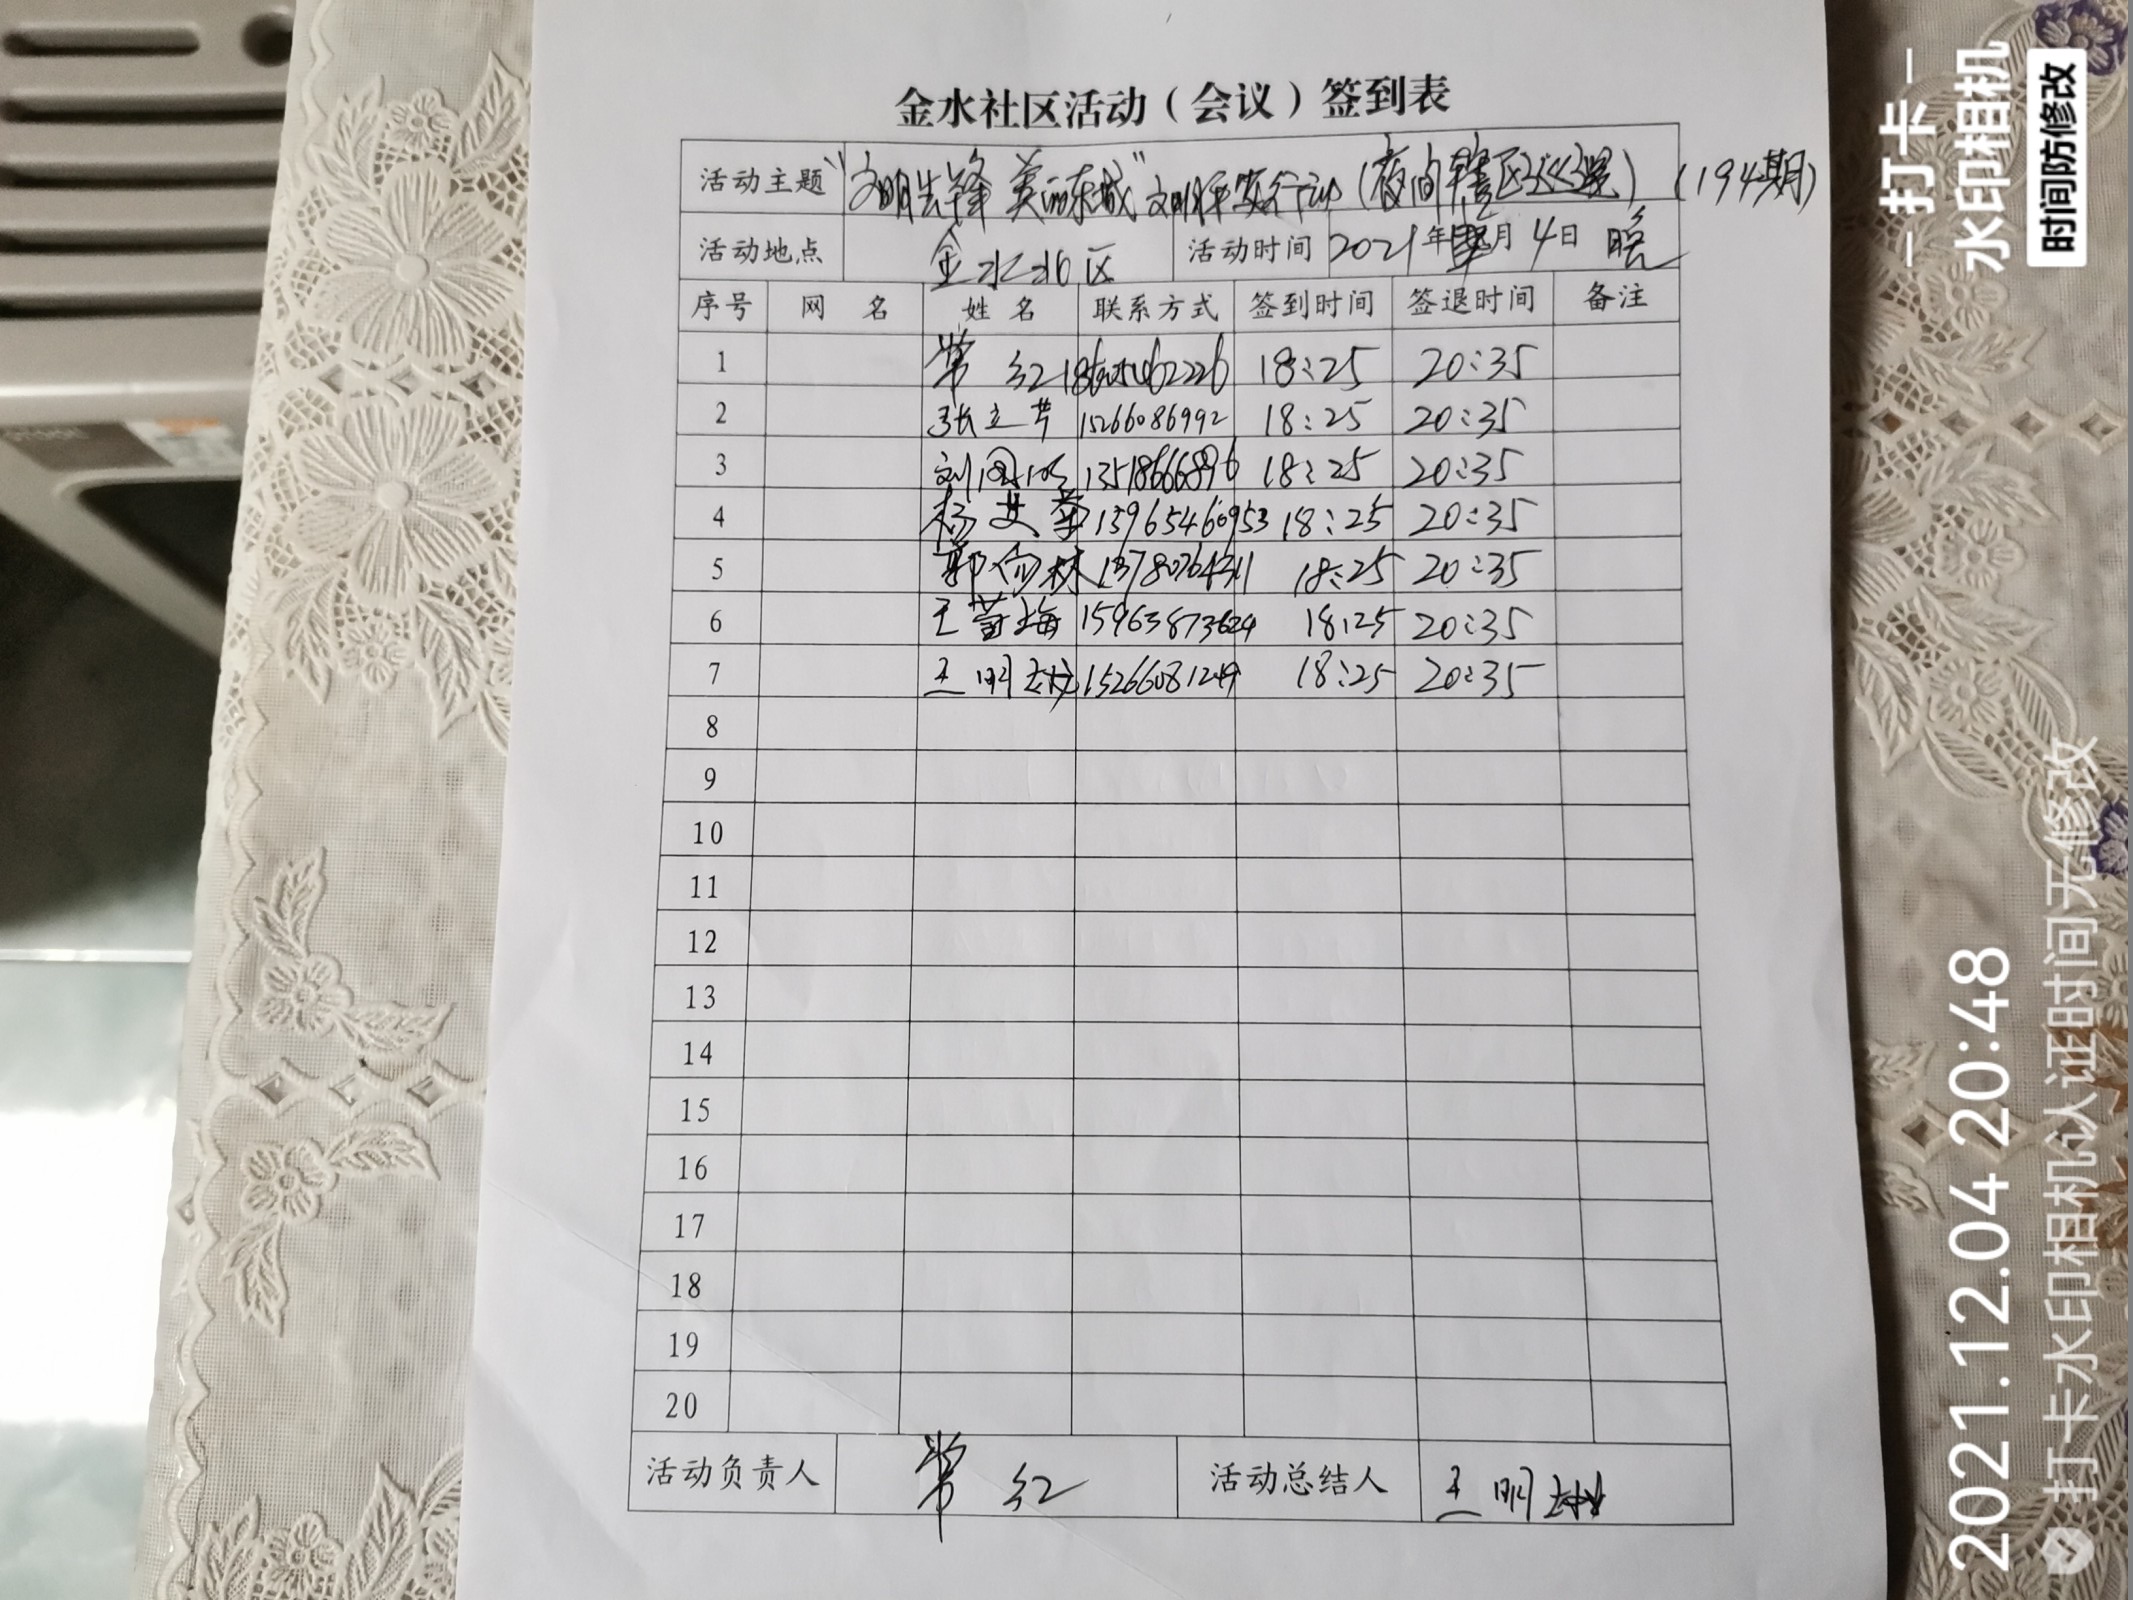 金水社区活动（会议）签到表
活动主题 "文明先锋 美丽东城"文明 行动（夜间辖区巡逻）（194期）
活动地点 金水北区 活动时间 2021年 月 4日 晚
序号 网 名 姓 名 联系方式 签到时间 签退时间 备注
1 常 红 18:25 20:35
2 张立芹 15266086992 18:25 20:35
3 刘 13518666896 18:25 20:35
4 杨 15965460953 18:25 20:35
5 郭向林 13780764311 18:25 20:35
6 王 梅 15963873624 18:25 20:35
7 王明 15266081249 18:25 20:35
8
9
10
11
12
13
14
15
16
17
18
19
20
活动负责人 常 红 活动总结人 王明
打卡
水印相机
时间防修改
2021.12.04 20:48
打卡水印相机认证时间无修改